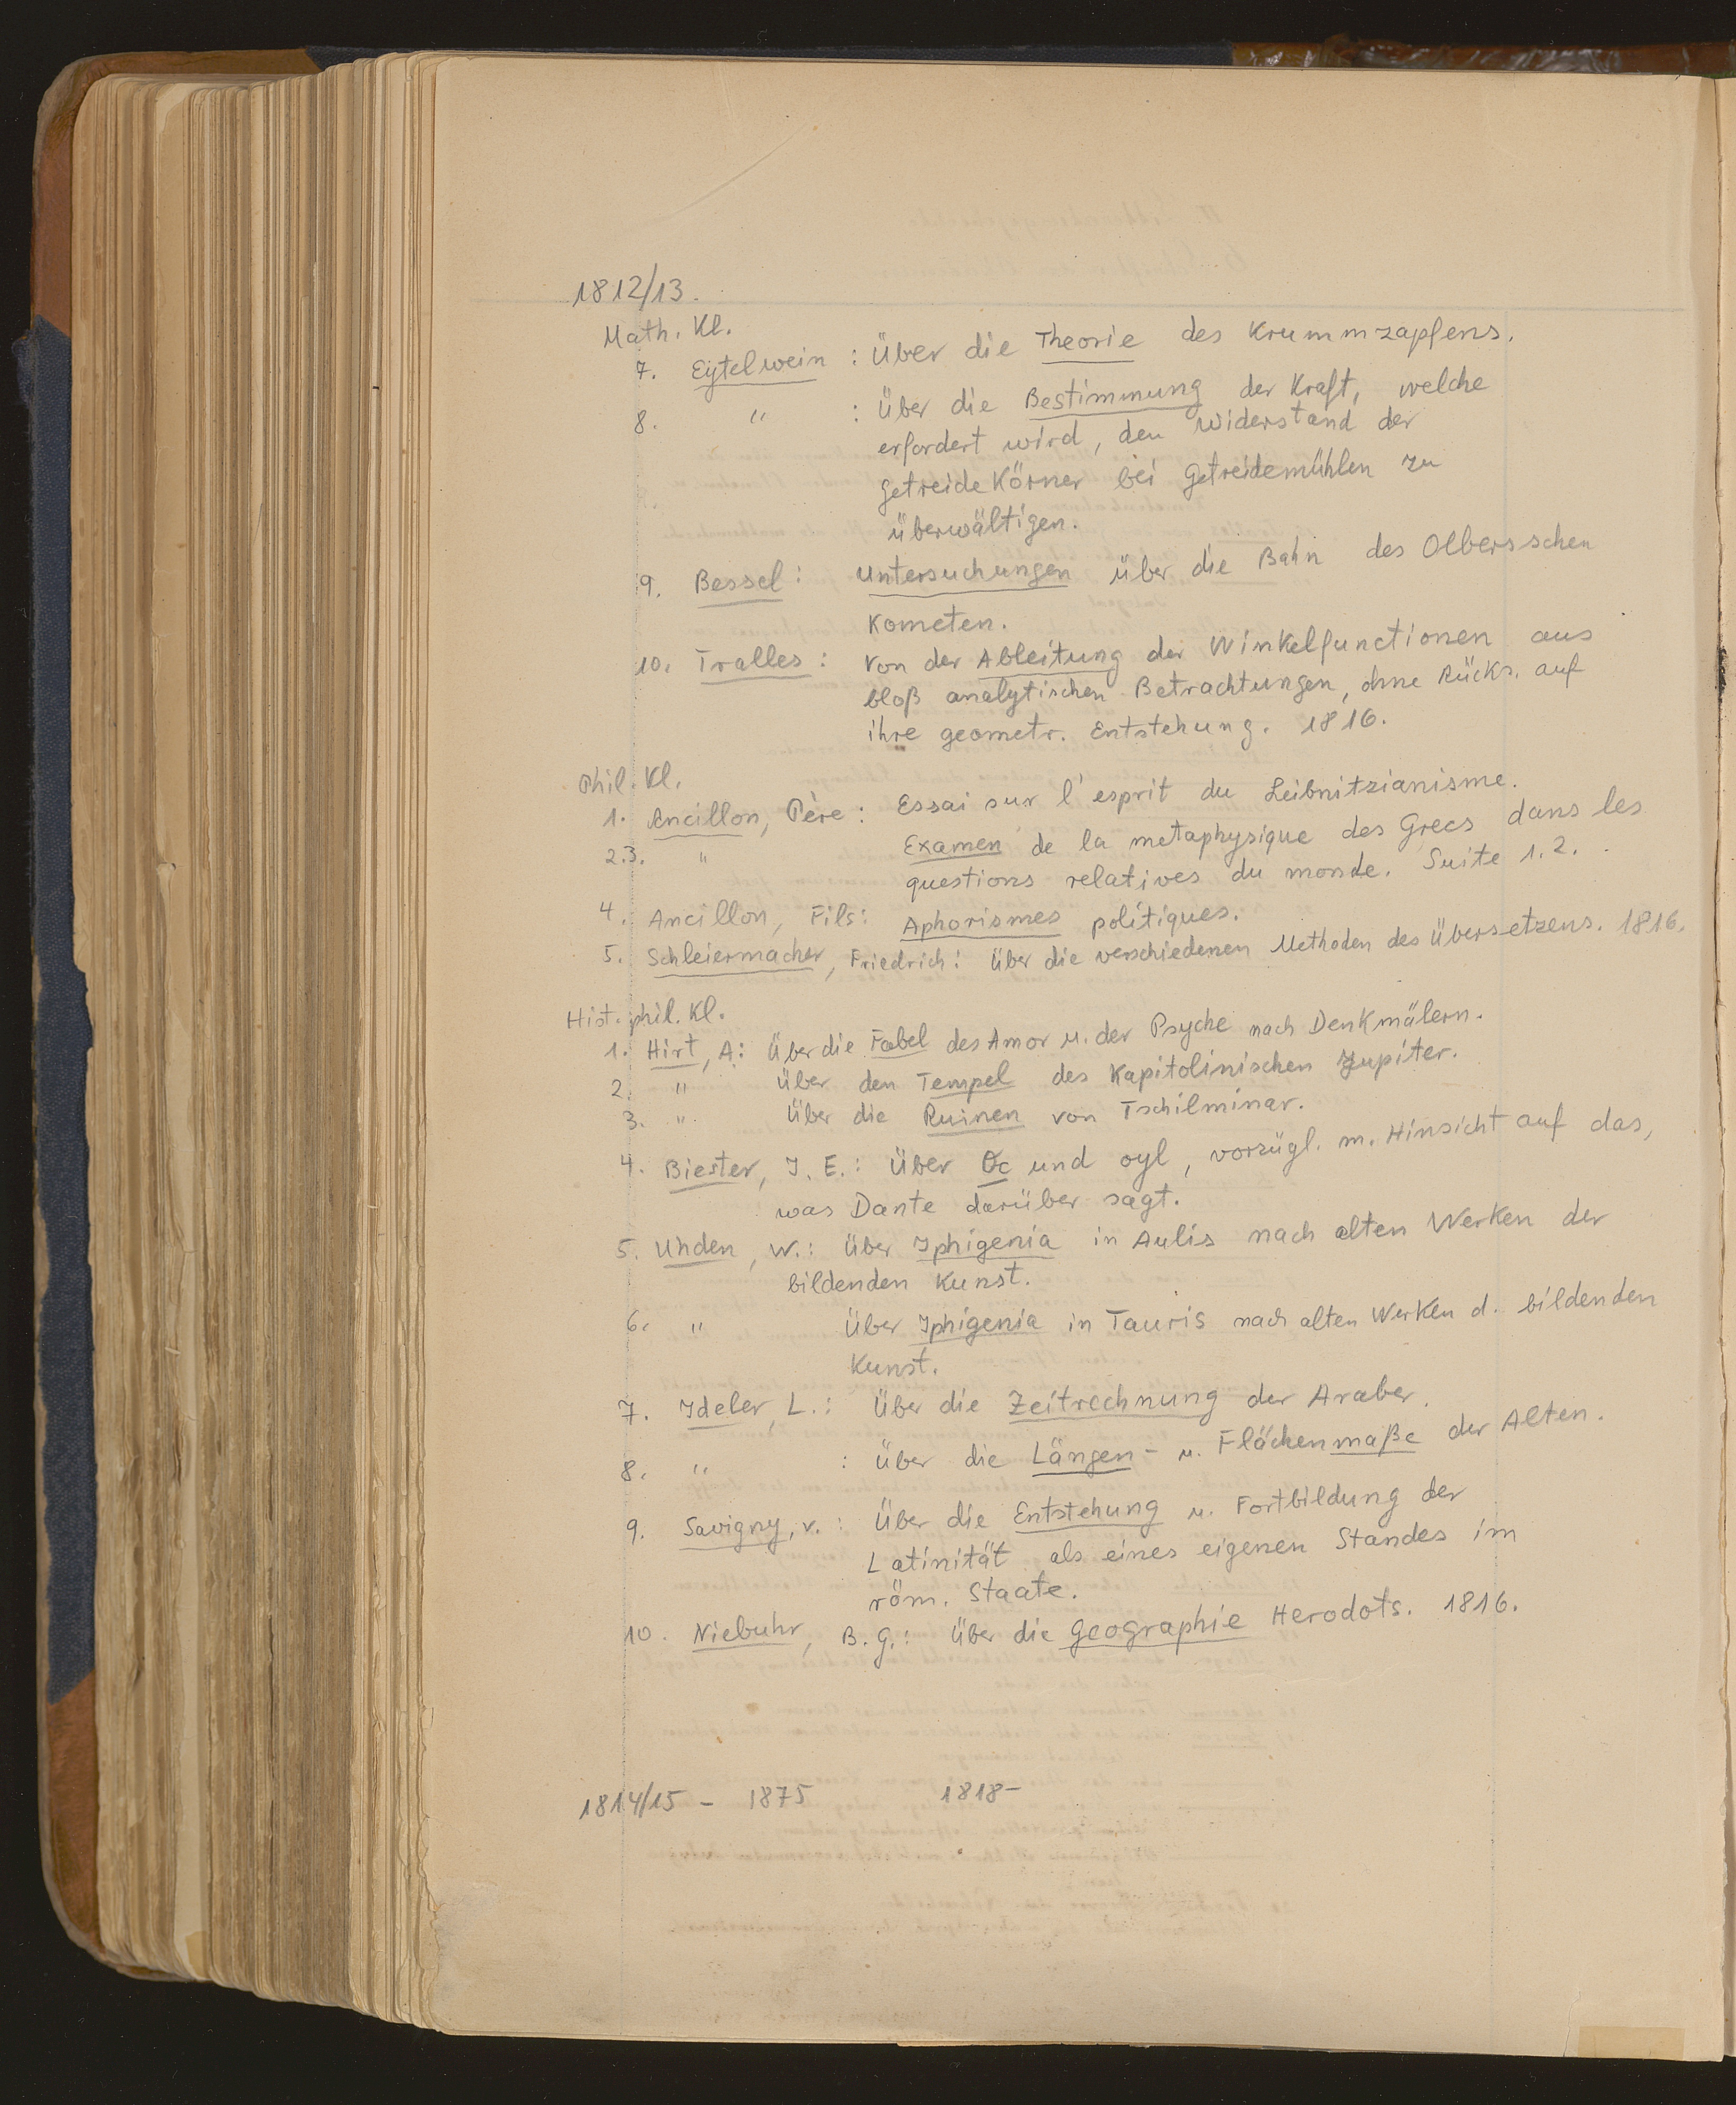 1812/13.
Math. Kl.
7. Eytelwein : Über die Theorie des Krummzapfens.
8. " : Über die Bestimmung der Kraft, welche
erfordert wird, den Widerstand der
Getreidekörner bei Getreidemühlen zu
überwältigen.
9. Bessel : Untersuchungen über die Bahn des Olbersschen
Kometen.
10. Tralles : Von der Ableitung der Winkelfunctionen aus
bloß analytischen Betrachtungen, ohne Rücks. auf
ihre geometr. Entstehung. 1816.
Phil. Kl.
1. Ancillon, Père : Essai sur l'esprit du Leibnitzianisme.
2.3. " Examen de la metaphysique des Grecs dans les
questions relatives du monde. Suite 1. 2.
4. Ancillon, Fils : Aphorismes politiques.
5. Schleiermacher, Friedrich : Über die verschiedenen Methoden des Übersetzens. 1816.
Hist. phil. Kl.
1. Hirt, A : Über die Fabel des Amor u. der Psyche nach Denkmälern.
2. " Über den Tempel des Kapitolinischen Jupiter.
3. " Über die Ruinen von Tschilminar.
4. Biester, J. E. : Über Oc und oyl, vorzügl. m. Hinsicht auf das,
was Dante darüber sagt.
5. Uhden, W. : Über Iphigenia in Aulis nach alten Werken der
bildenden Kunst.
6. " Über Iphigenia in Tauris nach alten Werken d. bildenden
Kunst.
7. Ideler, L. : Über die Zeitrechnung der Araber.
8. " : Über die Längen- u. Flächenmaße der Alten.
9. Savigny, v. : Über die Entstehung u. Fortbildung der
Latinität als eines eigenen Standes im
röm. Staate.
10. Niebuhr, B. G. : Über die Geographie Herodots. 1816.
1814/15 - 1875 1818-